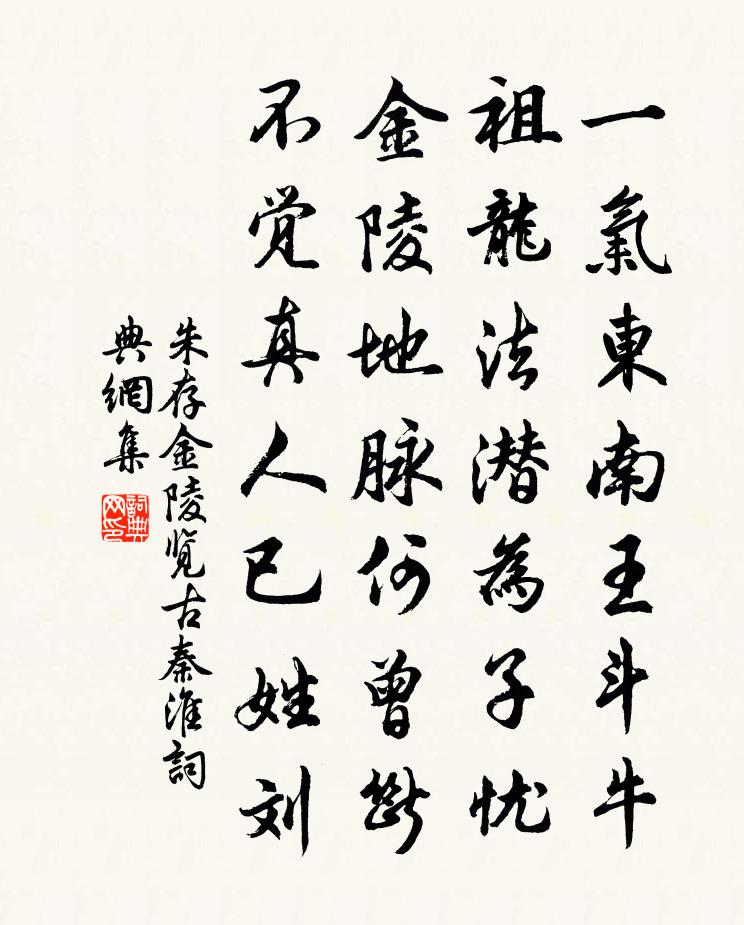 一氣東南王斗牛
祖龍法潜為子忧
金陵地脉何曾斷
不觉真人已姓刘
朱存金陵览古秦淮詞
典網集
詞典
网印